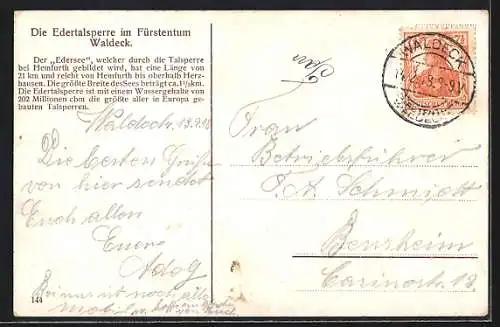 Die Edertalsperre im Fürstentum
Waldeck.
Der „Edersee", welcher durch die Talsperre
bei Hemfurth gebildet wird, hat eine Länge von
21 km und reicht von Hemfurth bis oberhalb Herz-
hausen. Die größte Breite des Sees beträgt ca. 1½ km.
Die Edertalsperre ist mit einem Wassergehalt von
202 Millionen cbm die größte aller in Europa ge-
bauten Talsperren.
Waldeck, 13.9.18
Die besten Grüße
von hier sendet
Euch allen
Euer
Adolf
Bei uns ist noch alles
144
WALDECK
Frau
Betriebsführer
A. Schmidt
Bensheim